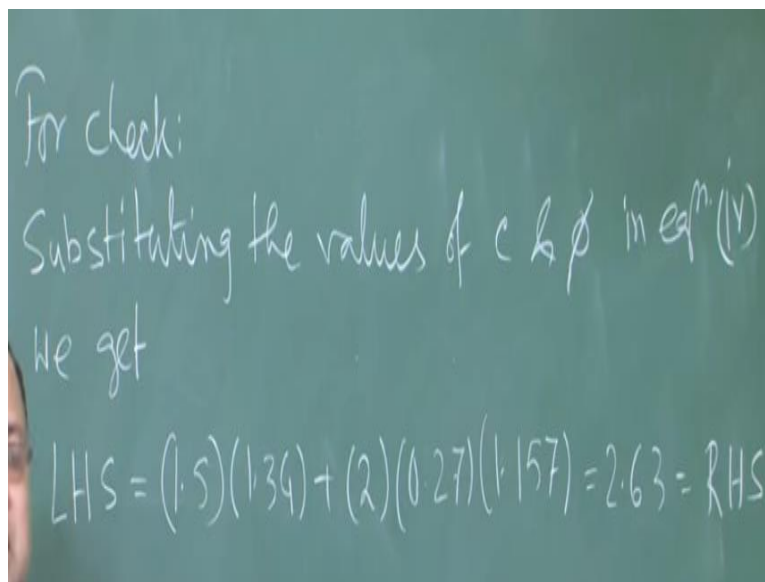 For check:
Substituting the values of c & ϕ in eqⁿ. (iv)
we get
LHS = (1.5)(1.34) + (2)(0.27)(1.157) = 2.63 = RHS